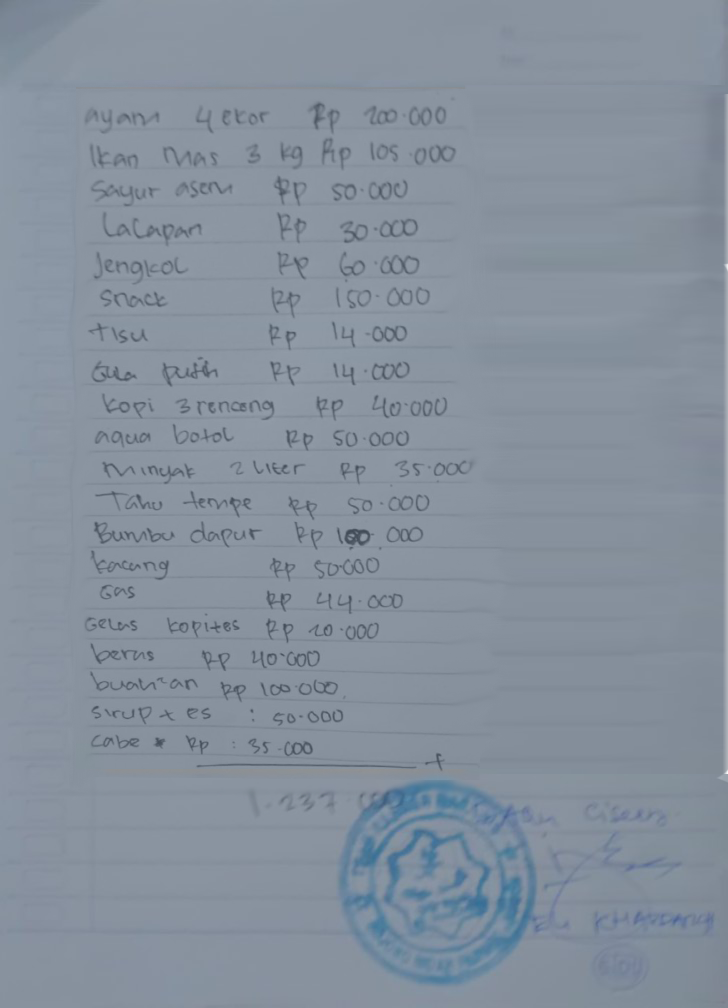 ayam 4 ekor Rp 200.000
Ikan Mas 3 kg Rp 105.000
Sayur asem Rp 50.000
Lalapan Rp 30.000
Jengkol Rp 60.000
Snack Rp 150.000
tisu Rp 14.000
Gula putih Rp 14.000
kopi 3 renceng Rp 40.000
aqua botol Rp 50.000
Minyak 2 Liter Rp 35.000
Tahu tempe Rp 50.000
Bumbu dapur Rp 100.000
kacang Rp 50.000
Gas Rp 44.000
Gelas kopi+es Rp 20.000
beras Rp 40.000
buah²an Rp 100.000
sirup + es : 50.000
cabe Rp : 35.000
+
1.237.000